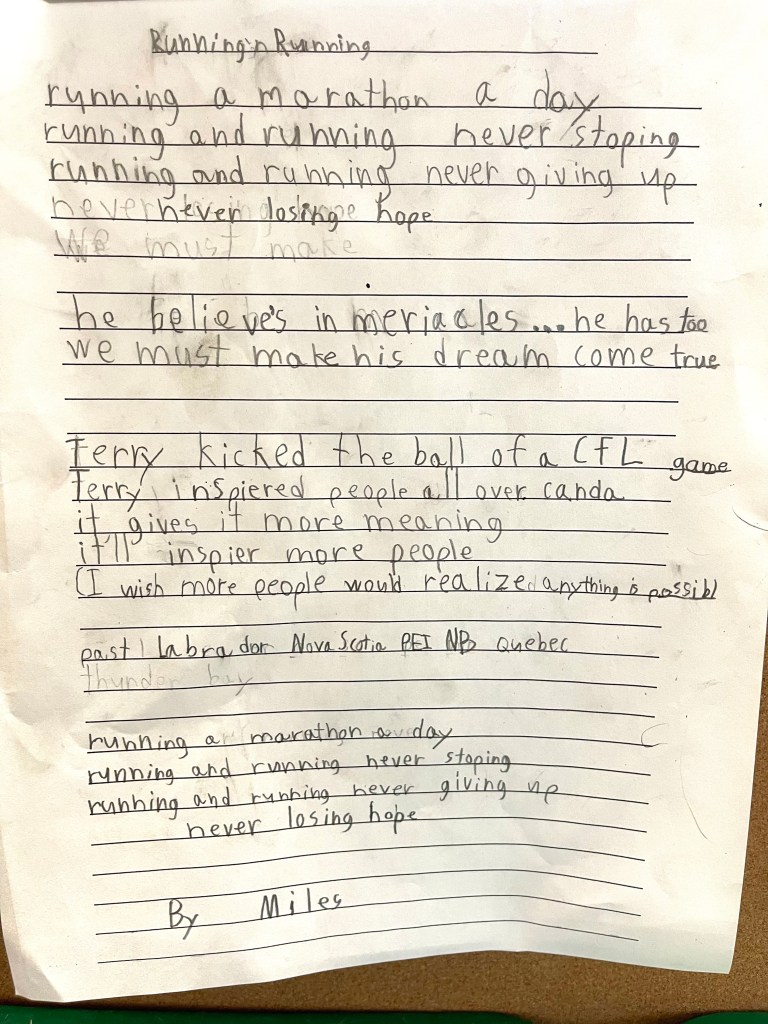 Running n Running
running a marathon a day
running and running never stoping
running and running never giving up
never losing hope
We must make
he believe's in meriacles...he has too
we must make his dream come true
Terry kicked the ball of a CfL game
Terry inspiered people all over canda
it gives it more meaning
it'll inspier more people
(I wish more people would realized anything is possibl
past Labrador Nova Scotia PEI NB Quebec
thunder bay
running a marathon a day
running and running never stoping
running and running never giving up
never losing hope
By Miles